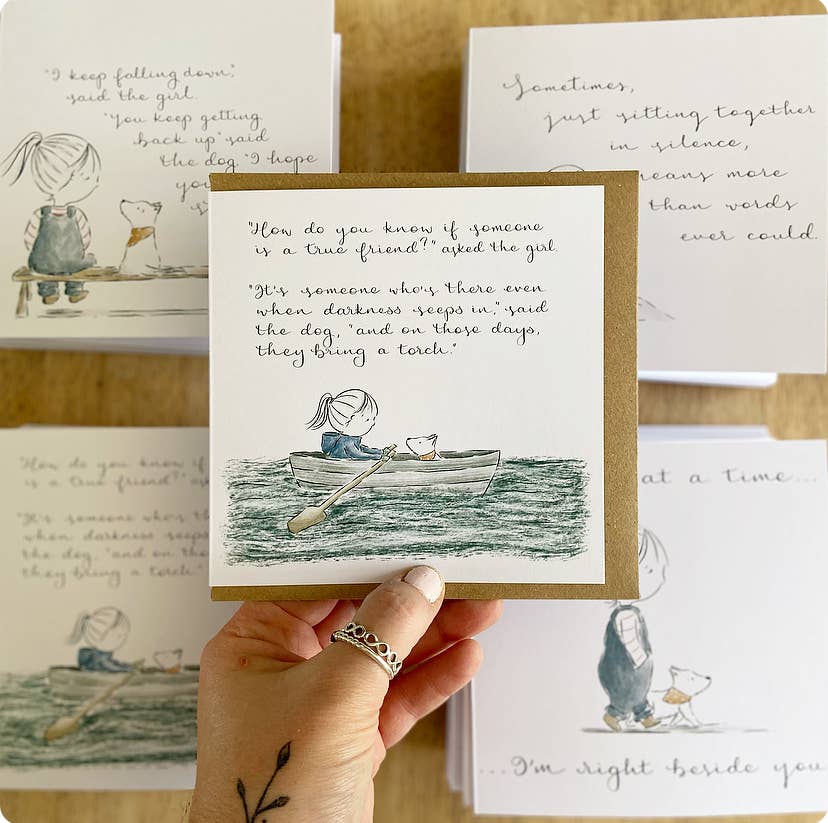 "I keep falling down",
said the girl.
"You keep getting
back up" said
the dog. "I hope
you
Sometimes,
just sitting together
in silence,
means more
than words
ever could.
"How do you know if someone
is a true friend?" asked the girl.
"It's someone who's there even
when darkness seeps in," said
the dog, "and on those days,
they bring a torch."
"How do you know if
is a true friend?"
"It's someone who's
when darkness seeps
the dog, "and on
they bring a torch."
at a time...
...I'm right beside you